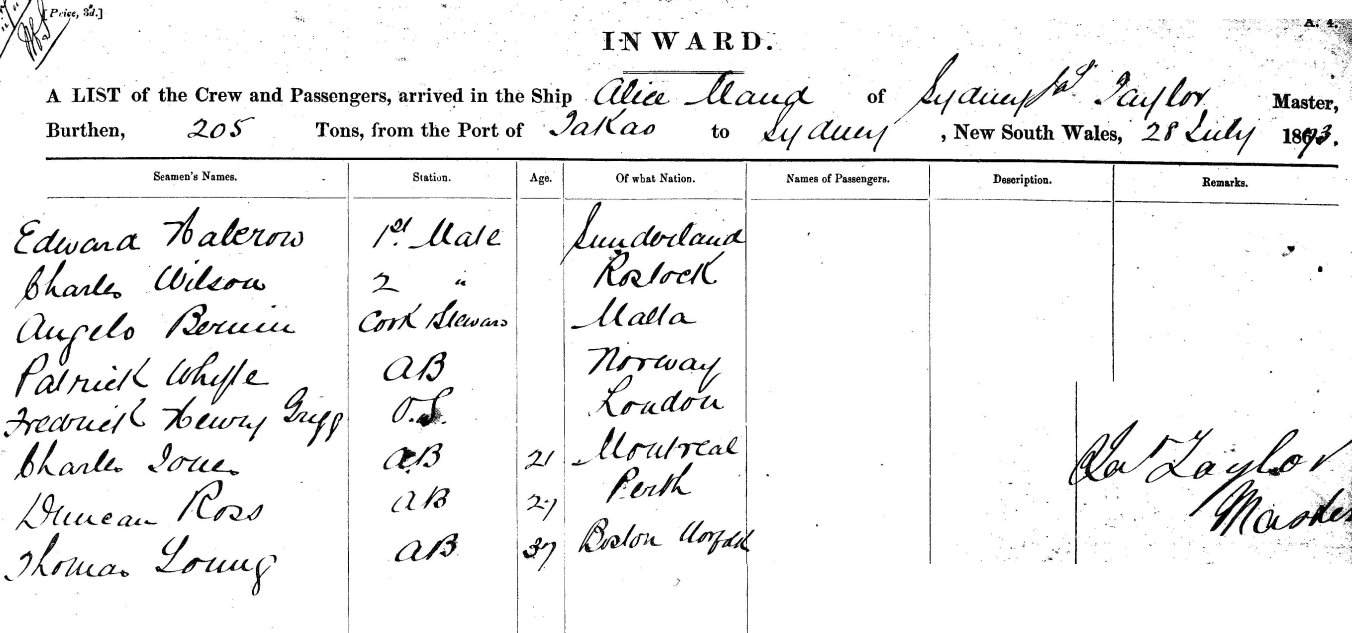 [Price, 3d.]
A. 4.
INWARD.
A LIST of the Crew and Passengers, arrived in the Ship Alice Maud of Sydney Jas Taylor Master,
Burthen, 205 Tons, from the Port of Takao to Sydney, New South Wales, 28 July 1873.
Seamen's Names. Station. Age. Of what Nation. Names of Passengers. Description. Remarks.
Edward Halcrow 1st. Mate Sunderland
Charles Wilson 2 " Rostock
Angelo Cook Steward Malta
Patrick Whyte AB Norway
Fredrick Henry Grigg O.S. London
Charles Jones AB 21 Montreal
Duncan Ross AB 27 Perth
Thomas Young AB 37 Boston Norfolk
Jas Taylor
Master